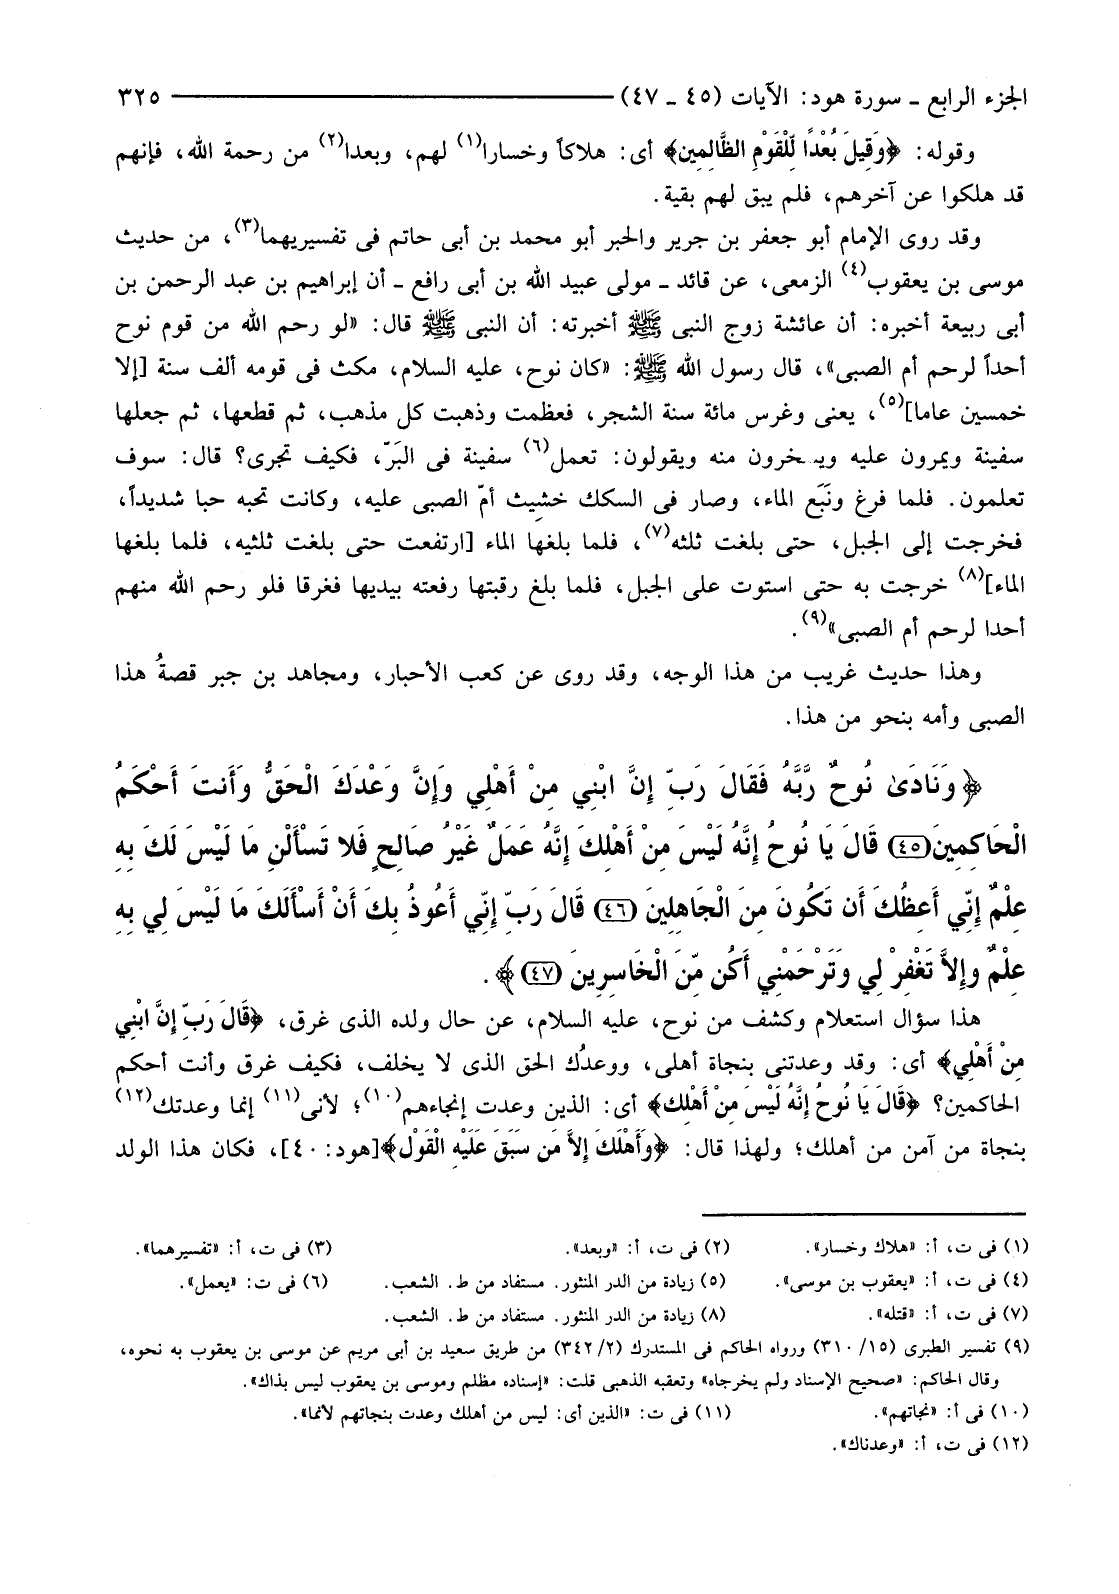 الجزء الرابع ـ سورة هود: الآيات (٤٥ ـ ٤٧) ٣٢٥
وقوله: ﴿وَقِيلَ بُعْدًا لِّلْقَوْمِ الظَّالِمِين﴾ أى: هلاكاً وخسارا(١) لهم، وبعدا(٢) من رحمة الله، فإنهم
قد هلكوا عن آخرهم، فلم يبق لهم بقية.
وقد روى الإمام أبو جعفر بن جرير والحبر أبو محمد بن أبى حاتم فى تفسيريهما(٣)، من حديث
موسى بن يعقوب(٤) الزمعى، عن قائد ـ مولى عبيد الله بن أبى رافع ـ أن إبراهيم بن عبد الرحمن بن
أبى ربيعة أخبره: أن عائشة زوج النبى ﷺ أخبرته: أن النبى ﷺ قال: «لو رحم الله من قوم نوح
أحداً لرحم أم الصبى»، قال رسول الله ﷺ: «كان نوح، عليه السلام، مكث فى قومه ألف سنة [إلا
خمسين عاما](٥)، يعنى وغرس مائة سنة الشجر، فعظمت وذهبت كل مذهب، ثم قطعها، ثم جعلها
سفينة ويمرون عليه ويسخرون منه ويقولون: تعمل(٦) سفينة فى البَرّ، فكيف تجرى؟ قال: سوف
تعلمون. فلما فرغ ونَبَع الماء، وصار فى السكك خشِيت أمّ الصبى عليه، وكانت تحبه حبا شديداً،
فخرجت إلى الجبل، حتى بلغت ثلثه(٧)، فلما بلغها الماء [ارتفعت حتى بلغت ثلثيه، فلما بلغها
الماء](٨) خرجت به حتى استوت على الجبل، فلما بلغ رقبتها رفعته بيديها فغرقا فلو رحم الله منهم
أحدا لرحم أم الصبى»(٩).
وهذا حديث غريب من هذا الوجه، وقد روى عن كعب الأحبار، ومجاهد بن جبر قصةُ هذا
الصبى وأمه بنحو من هذا.
﴿وَنَادَىٰ نُوحٌ رَّبَّهُ فَقَالَ رَبِّ إِنَّ ابْنِي مِنْ أَهْلِي وَإِنَّ وَعْدَكَ الْحَقُّ وَأَنتَ أَحْكَمُ
الْحَاكِمِينَ (٤٥) قَالَ يَا نُوحُ إِنَّهُ لَيْسَ مِنْ أَهْلِكَ إِنَّهُ عَمَلٌ غَيْرُ صَالِحٍ فَلا تَسْأَلْنِ مَا لَيْسَ لَكَ بِهِ
عِلْمٌ إِنِّي أَعِظُكَ أَن تَكُونَ مِنَ الْجَاهِلِينَ (٤٦) قَالَ رَبِّ إِنِّي أَعُوذُ بِكَ أَنْ أَسْأَلَكَ مَا لَيْسَ لِي بِهِ
عِلْمٌ وَإِلاَّ تَغْفِرْ لِي وَتَرْحَمْنِي أَكُن مِّنَ الْخَاسِرِينَ (٤٧)﴾.
هذا سؤال استعلام وكشف من نوح، عليه السلام، عن حال ولده الذى غرق، ﴿قَالَ رَبِّ إِنَّ ابْنِي
مِنْ أَهْلِي﴾ أى: وقد وعدتنى بنجاة أهلى، ووعدُك الحق الذى لا يخلف، فكيف غرق وأنت أحكم
الحاكمين؟ ﴿قَالَ يَا نُوحُ إِنَّهُ لَيْسَ مِنْ أَهْلِك﴾ أى: الذين وعدت إنجاءهم(١٠)؛ لأنى(١١) إنما وعدتك(١٢)
بنجاة من آمن من أهلك؛ ولهذا قال: ﴿وَأَهْلَكَ إِلاَّ مَن سَبَقَ عَلَيْهِ الْقَوْل﴾[هود: ٤٠]، فكان هذا الولد
(١) فى ت، أ: «هلاك وخسار». (٢) فى ت، أ: «وبعد». (٣) فى ت، أ: «تفسيرهما».
(٤) فى ت، أ: «يعقوب بن موسى». (٥) زيادة من الدر المنثور. مستفاد من ط. الشعب. (٦) فى ت: «يعمل».
(٧) فى ت، أ: «قتله». (٨) زيادة من الدر المنثور. مستفاد من ط. الشعب.
(٩) تفسير الطبرى (١٥/ ٣١٠) ورواه الحاكم فى المستدرك (٢/ ٣٤٢) من طريق سعيد بن أبى مريم عن موسى بن يعقوب به نحوه،
وقال الحاكم: «صحيح الإسناد ولم يخرجاه» وتعقبه الذهبى قلت: «إسناده مظلم وموسى بن يعقوب ليس بذاك».
(١٠) فى أ: «نجاتهم». (١١) فى ت: «الذين أى: ليس من أهلك وعدت بنجاتهم لأنما».
(١٢) فى ت، أ: «وعدناك».